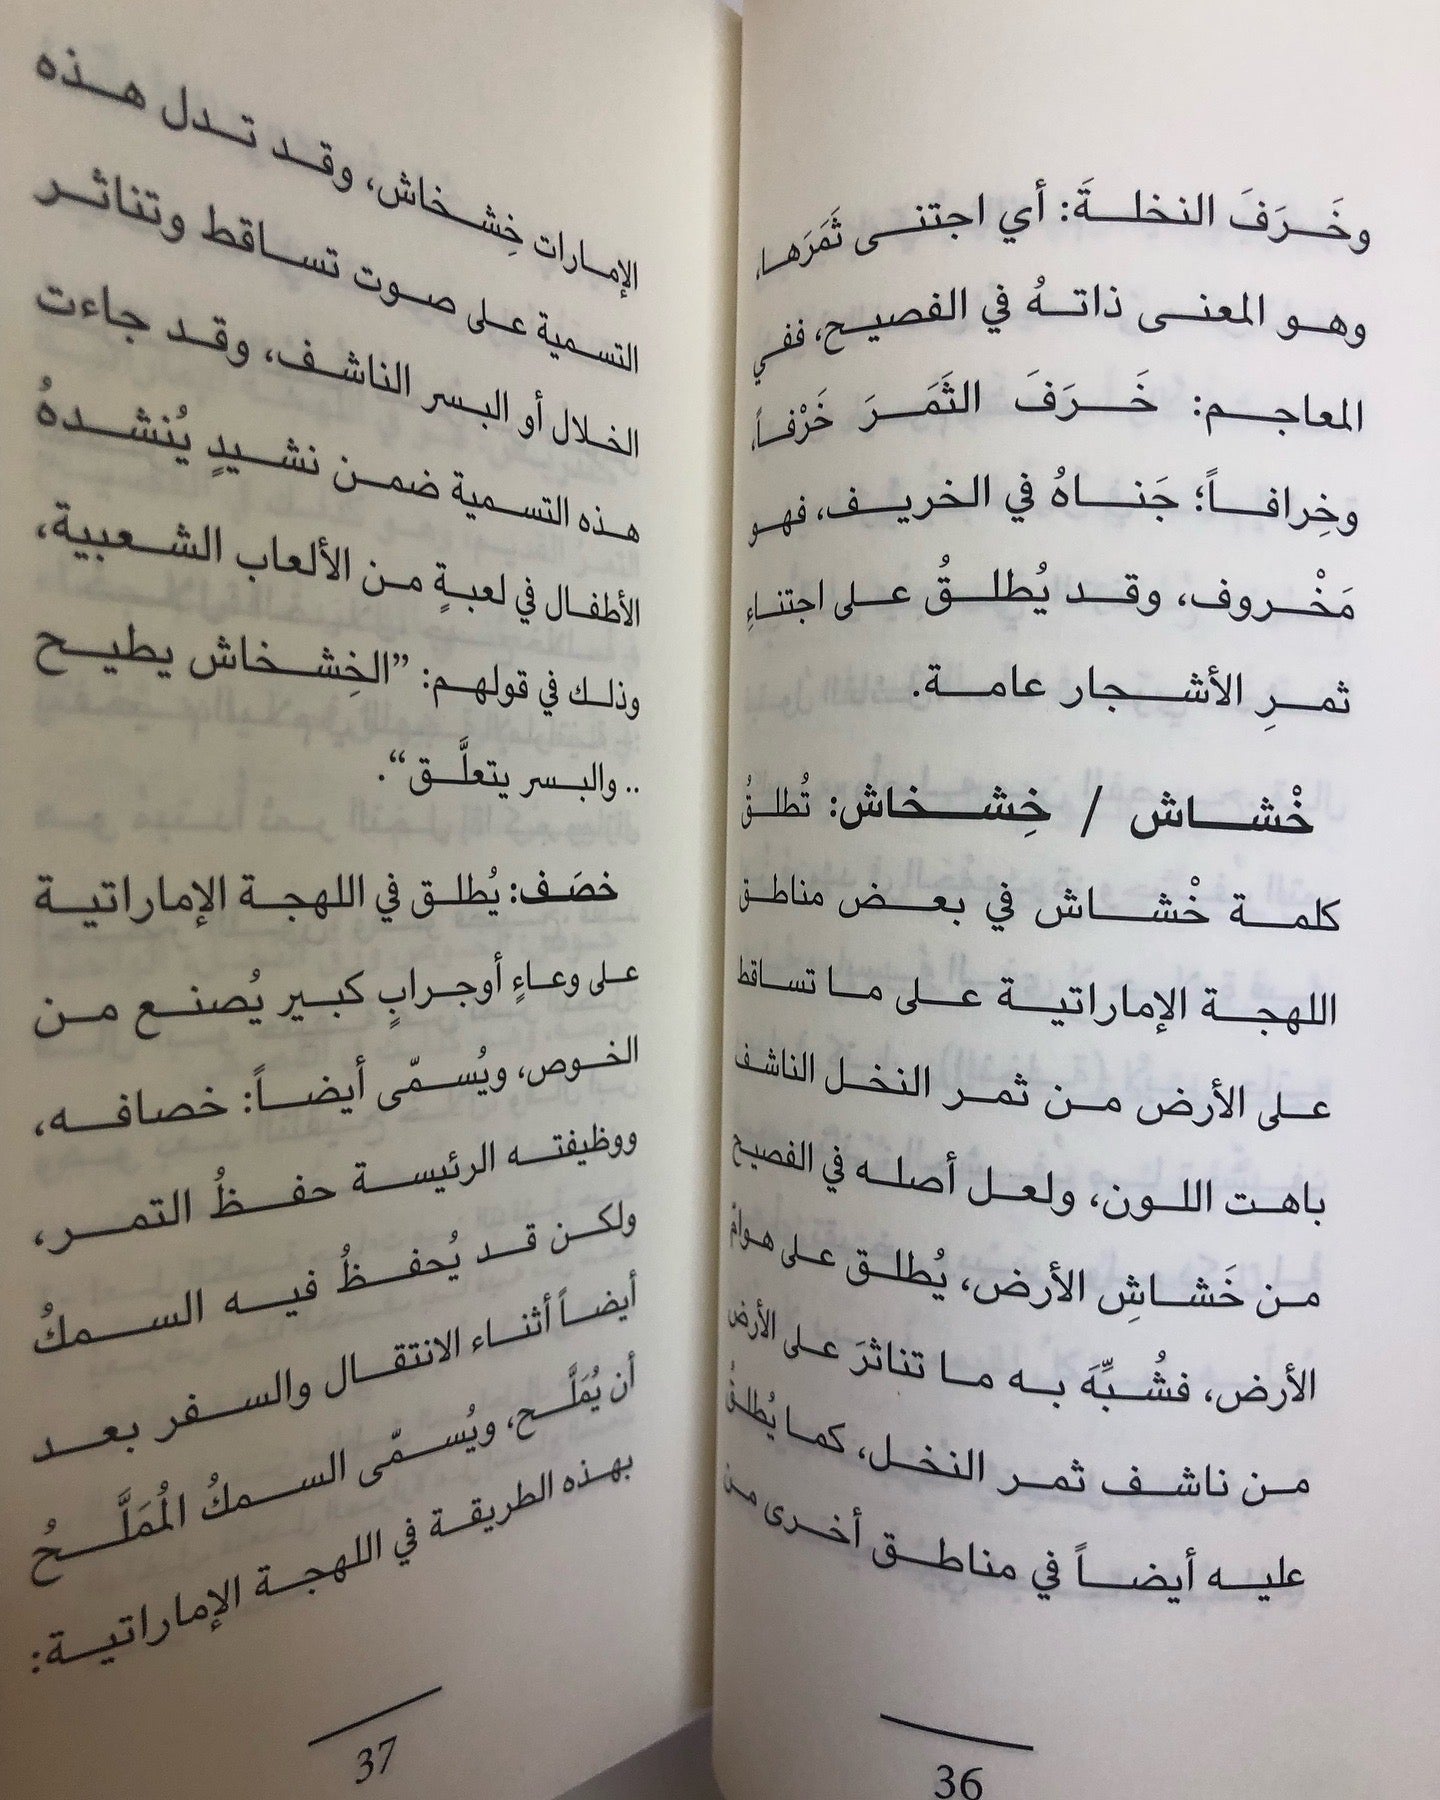 وخَرَفَ النخلةَ: أي اجتنى ثَمَرَها،
وهو المعنى ذاتهُ في الفصيح، ففي
المعاجم: خَرَفَ الثَمَرَ خَرْفاً،
وخِرافاً؛ جَناهُ في الخريف، فهو
مَخْروف، وقد يُطلقُ على اجتناءِ
ثمرِ الأشجار عامة.
خْشاش / خِشخاش: تُطلقُ
كلمة خْشاش في بعض مناطق
اللهجة الإماراتية على ما تساقط
على الأرض من ثمر النخل الناشف
باهت اللون، ولعل أصله في الفصيح
من خَشاشِ الأرض، يُطلق على هوامْ
الأرض، فشُبِّهَ به ما تناثرَ على الأرض
من ناشف ثمر النخل، كما يُطلقُ
عليه أيضاً في مناطق أخرى من
36
الإمارات خِشخاش، وقد تدل هذه
التسمية على صوت تساقط وتناثر
الخلال أو البسر الناشف، وقد جاءت
هذه التسمية ضمن نشيدٍ يُنشدهُ
الأطفال في لعبةٍ من الألعاب الشعبية،
وذلك في قولهم: ”الخِشخاش يطيح
.. والبسر يتعلَّق“.
خصَف: يُطلق في اللهجة الإماراتية
على وعاءٍ أوجرابٍ كبير يُصنع من
الخوص، ويُسمّى أيضاً: خصافه،
ووظيفته الرئيسة حفظُ التمر،
ولكن قد يُحفظُ فيه السمكُ
أيضاً أثناء الانتقال والسفر بعد
أن يُمَلَّح، ويُسمّى السمكُ المُمَلَّحُ
بهذه الطريقة في اللهجة الإماراتية:
37